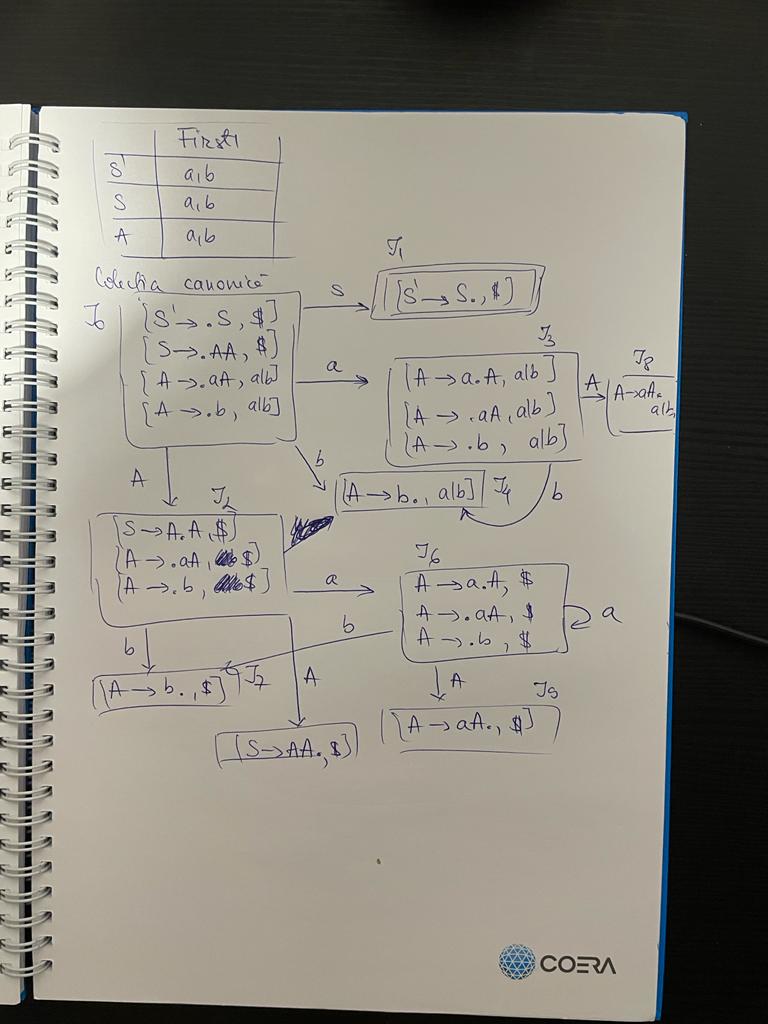 First1
S' a,b
S a,b
A a,b
Colecția canonică
I0
[S'→.S, $]
[S→.AA, $]
[A→.aA, a|b]
[A→.b, a|b]
S
I1
[S'→S., $]
a
I3
[A→a.A, a|b]
[A→.aA, a|b]
[A→.b, a|b]
A
I8
A→aA.
a|b
b
[A→b., a|b] I4
b
A
I2
[S→A.A, $]
[A→.aA, $]
[A→.b, $]
a
I6
A→a.A, $
A→.aA, $
A→.b, $
a
b
b
[A→b., $] I7
A
[S→AA., $]
A
I9
[A→aA., $]
COERA